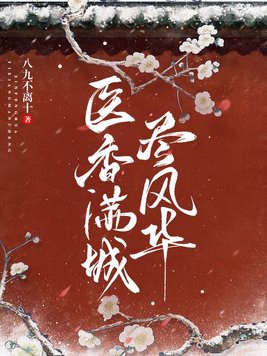 八九不离十 著
YIXIANGMANCHENG
医香满城
尽风华